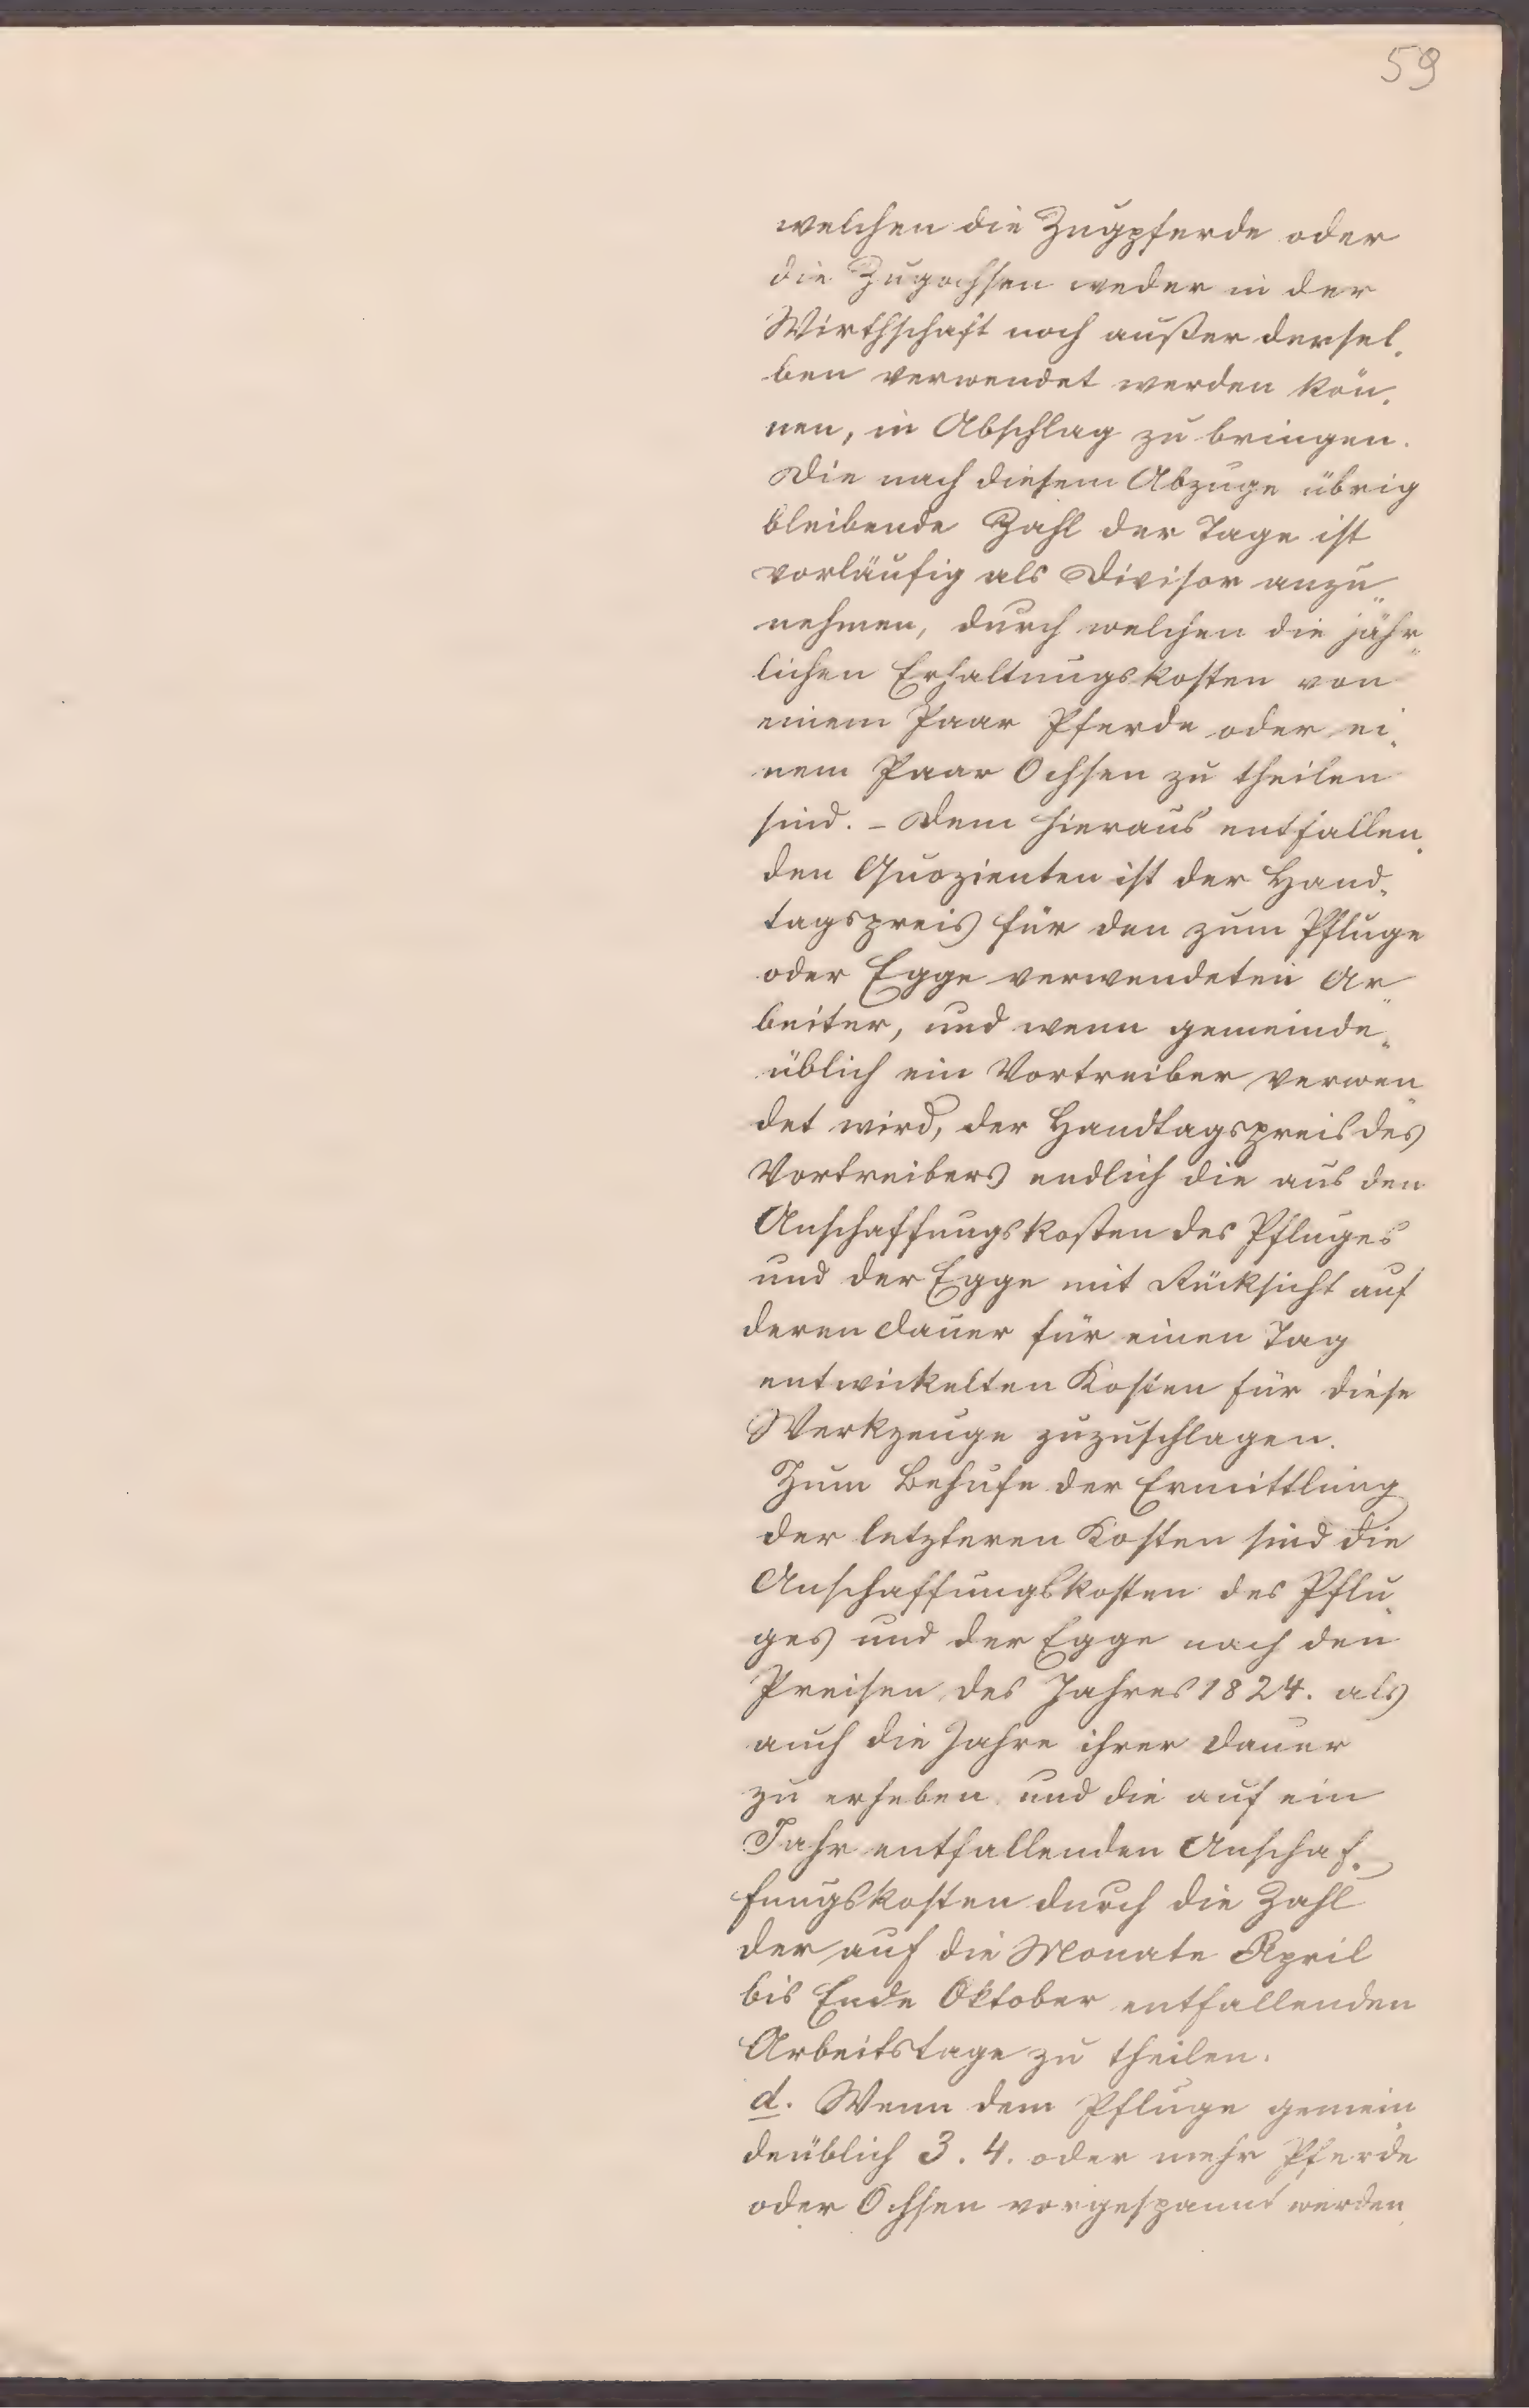 59
welchen die Zugpferde oder
die Zugochsen weder in der
Wirthschaft noch außer dersel„
ben verwendet werden kön„
nen, in Abschlag zu bringen.
Die nach diesem Abzuge übrig
bleibende Zahl der Tage ist
vorläufig als Divisor anzu„
nehmen, durch welchen die jähr„
lichen Erhaltungskosten von
einem Paar Pferde oder ei„
nem Paar Ochsen zu theilen
sind. – Dem hieraus entfallen„
den Quozienten ist der Hand„
tagspreis für den zum Pfluge
oder Egge verwendeten Ar„
beiter, und wenn gemeinde„
üblich ein Vortreiber verwen„
det wird, der Handtagspreis des
Vortreibers endlich die aus den
Anschaffungskosten des Pfluges
und der Egge mit Rücksicht auf
deren Dauer für einen Tag
entwickelten Kosten für diese
Werkzeuge zuzuschlagen.
Zum Behufe der Ermittlung
der letzteren Kosten sind die
Anschaffungskosten des Pflu„
ges und der Egge nach den
Preisen des Jahres 1824. als
auch die Jahre ihrer Dauer
zu erheben und die auf ein
Jahr entfallenden Anschaf„
fungskosten durch die Zahl
der auf die Monate April
bis Ende Oktober entfallenden
Arbeitstage zu theilen.
d. Wenn dem Pfluge gemein„
deüblich 3. 4. oder mehr Pferde
oder Ochsen vorgespannt werden,